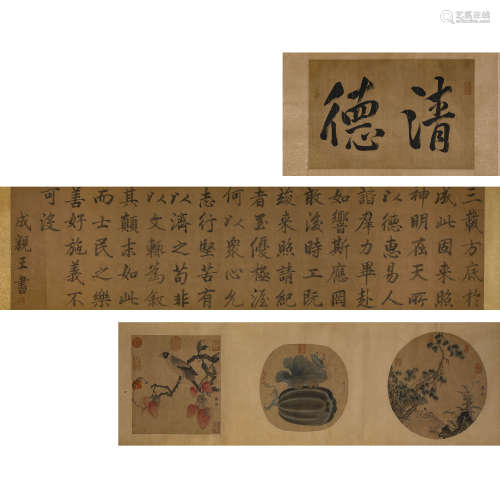 清德
三載方底於
成此因來照
神明在天所
以德惠易人
諧群力畢赴
如響斯應罔
敢後時工既
竣來照請紀
者至優極渥
何以眾心允
志行堅苦有
以濟之苟非
以文辭為敘
其顛末如此
而士民之樂
善好施義不
可沒
成親王書